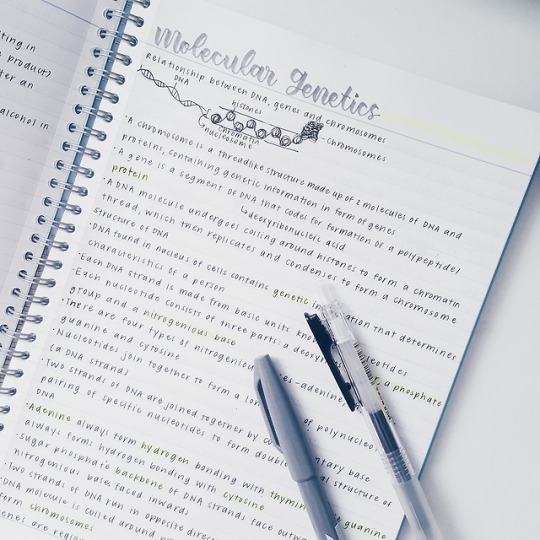 iting in
product)
ter an
alcohol in
Molecular Genetics
Relationship between DNA, genes and chromosomes
histones
DNA
chromatin
nucleosome
chromosomes
· A chromosome is a threadlike structure made up of 2 molecules of DNA and
proteins, containing genetic information in form of genes
· A gene is a segment of DNA that codes for formation of a polypeptide/
protein
deoxyribonucleic acid
· A DNA molecule undergoes coiling around histones to form a chromatin
thread, which then replicates and condenses to form a chromosome
Structure of DNA
· DNA found in nucleus of cells contains genetic information that determines
characteristics of a person
· Each DNA strand is made from basic units known nucleotides
· Each nucleotide consists of three parts: a deoxy a phosphate
group and a nitrogenious base
· There are four types of nitrogeniou ses - adenine,
guanine and cytosine
· Nucleotides join together to form a lon of polynucleo
(a DNA strand)
· Two strands of DNA are joined together by co ntary base
pairing of specific nucleotides to form doubl al structure of
DNA
· Adenine always form hydrogen bonding with thymin guanine
always forms hydrogen bonding with cytosine
· Sugar phosphate backbone of DNA strands face outwa
nitrogenious bases faced inwards
· Two strands of DNA run in opposite direc
· DNA molecule is coiled around pr
form chromosomes
genes are regi